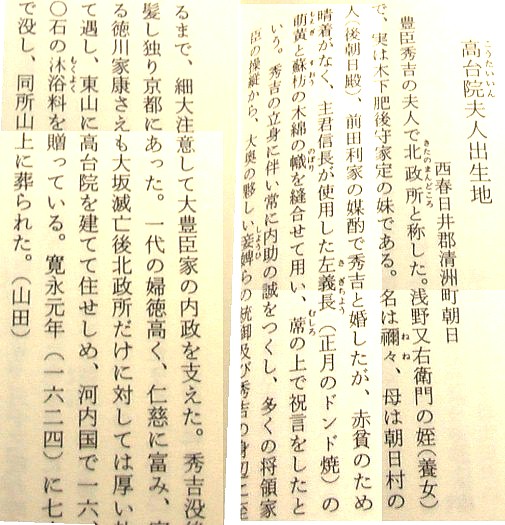 高台院夫人出生地
西春日井郡清洲町朝日
豊臣秀吉の夫人で北政所と称した。浅野又右衛門の姪(養女)
で、実は木下肥後守家定の妹である。名は禰々、母は朝日村の
人(後朝日殿)、前田利家の媒酌で秀吉と婚したが、赤貧のため
晴着がなく、主君信長が使用した左義長(正月のドンド焼)の
萌黄と蘇枋の木綿の幟を縫合せて用い、蓆の上で祝言をしたと
いう。秀吉の立身に伴い常に内助の誠をつくし、多くの将領家
臣の操縦から、大奥の夥しい妾婢らの統御及び秀吉の身辺に至
るまで、細大注意して大豊臣家の内政を支えた。秀吉没後
髪し独り京都にあった。一代の婦徳高く、仁慈に富み、
る徳川家康さえも大坂滅亡後北政所だけに対しては厚い
て遇し、東山に高台院を建てて住せしめ、河内国で一六、
〇石の沐浴料を贈っている。寛永元年(一六二四)に七
で没し、同所山上に葬られた。(山田)